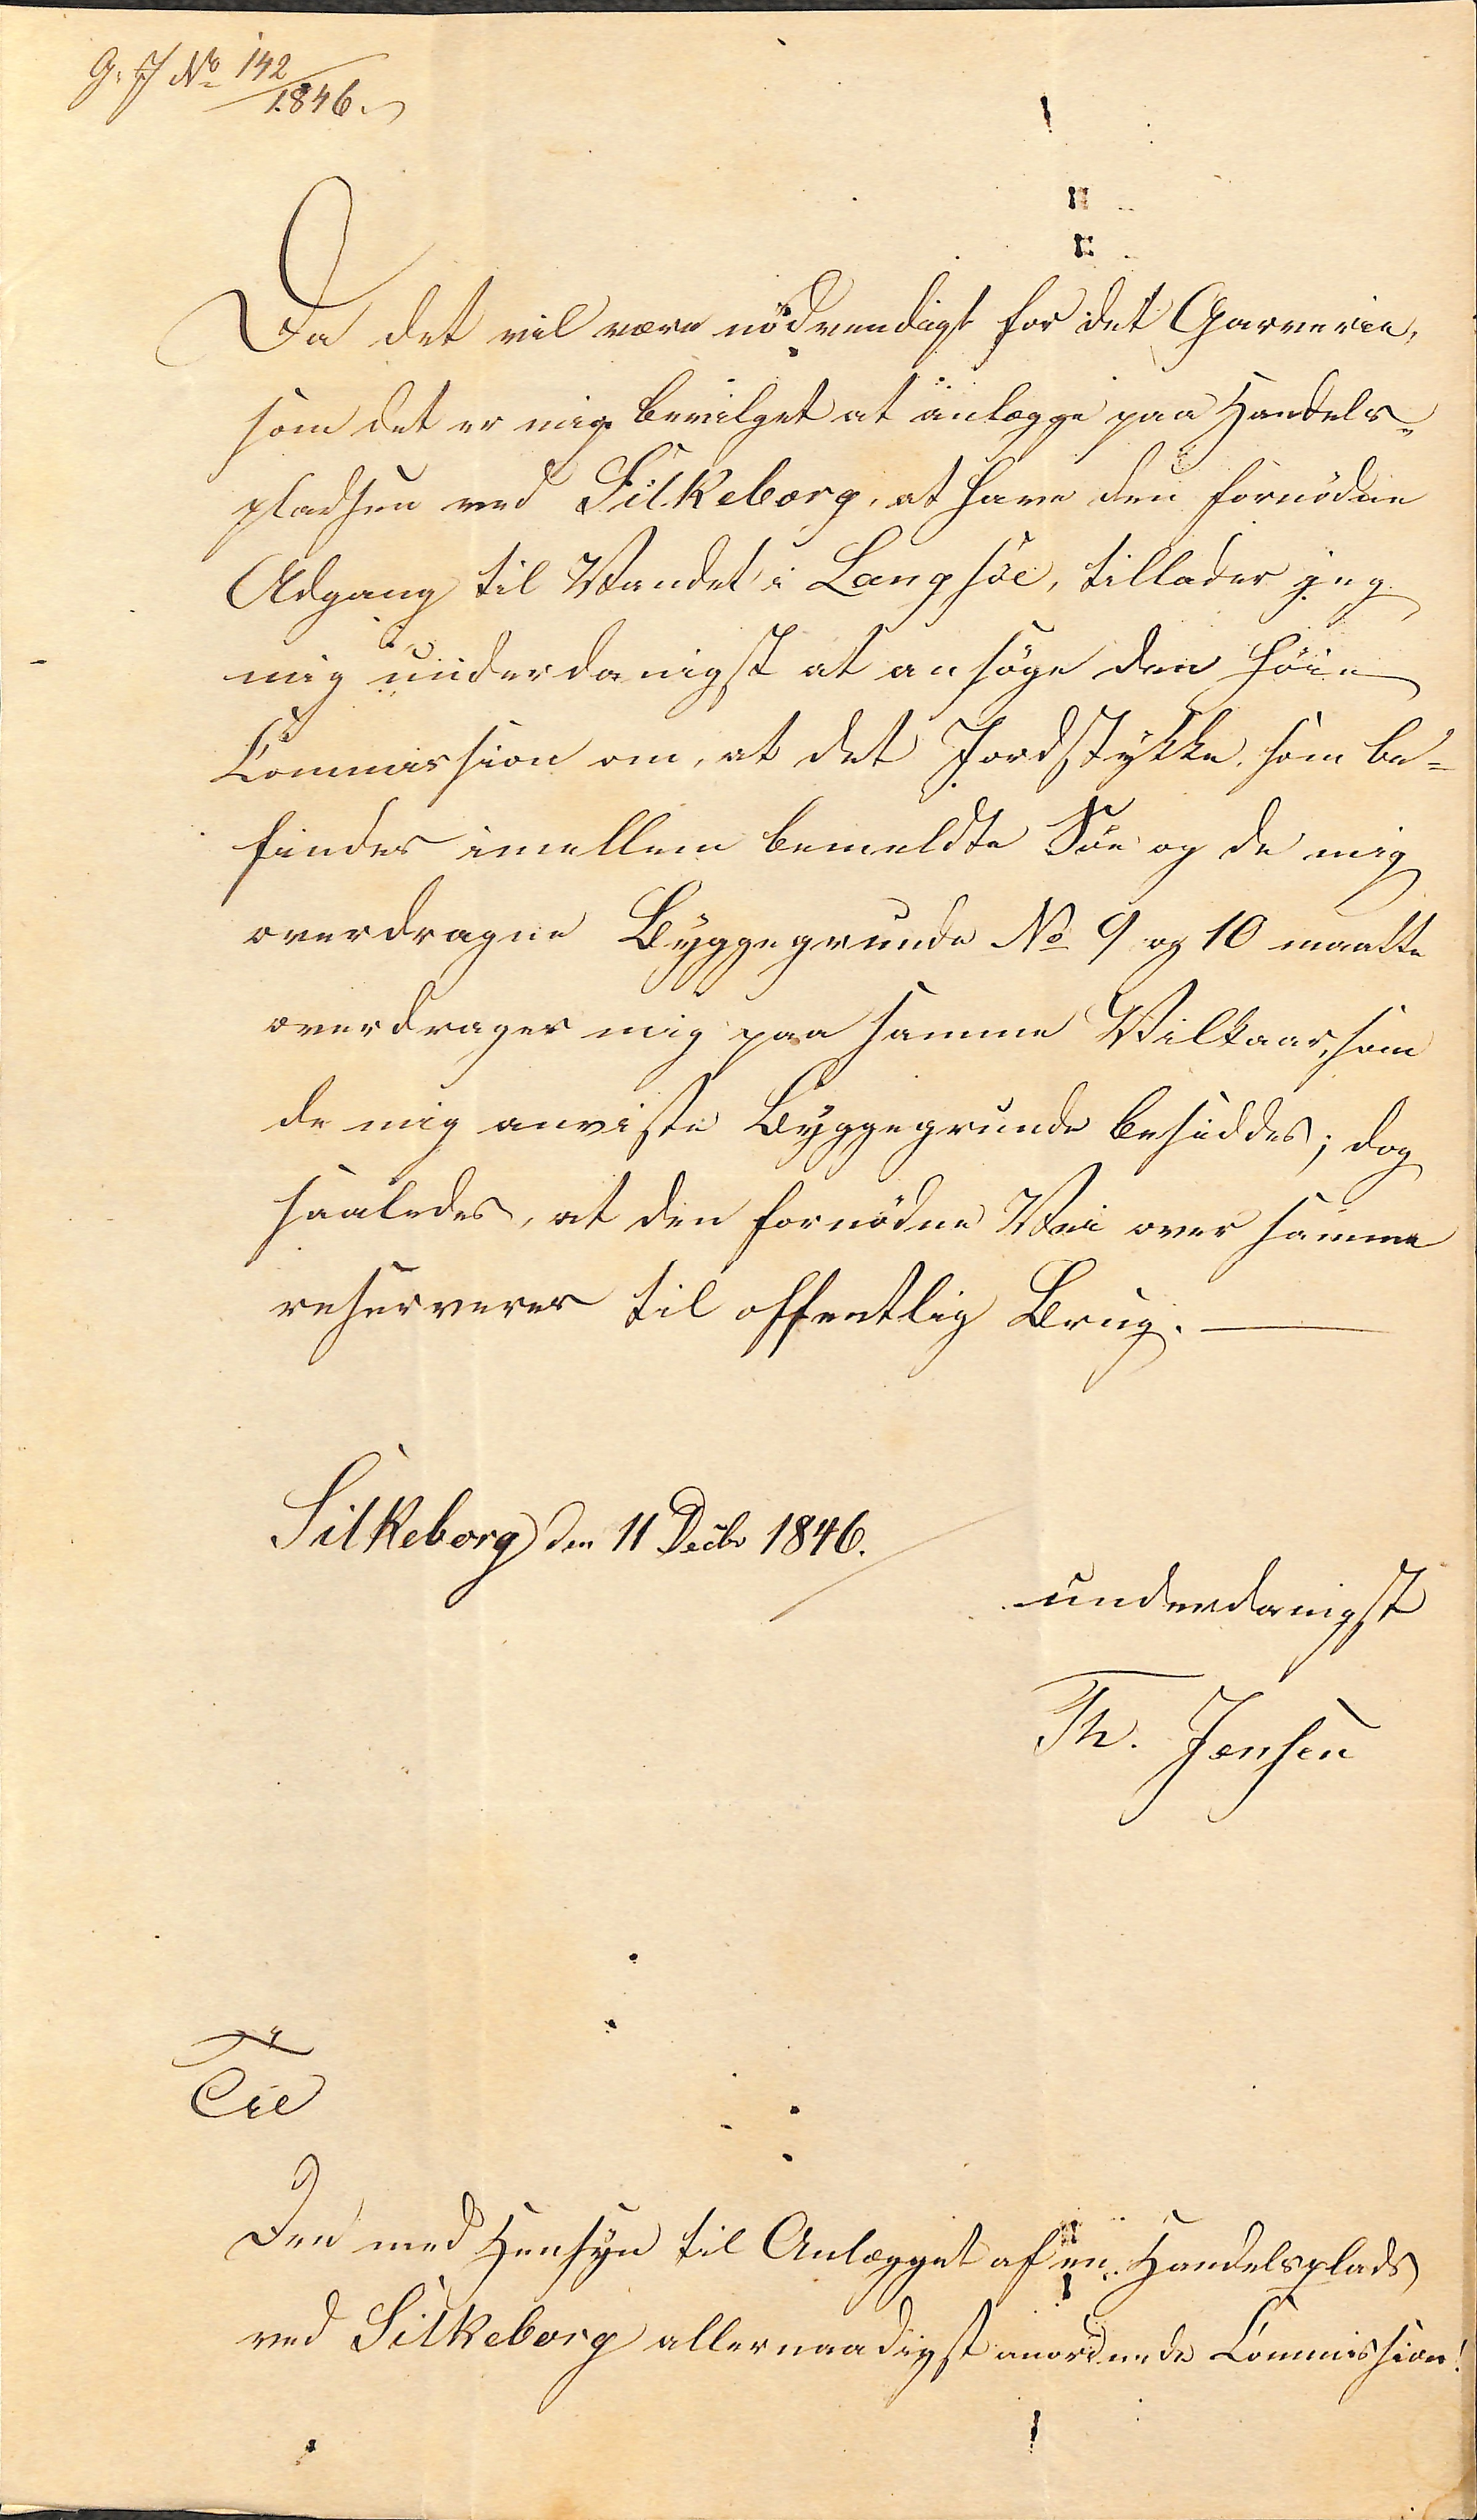 G: J No 142/1846.
Da det vil være nödvendigt for det Garverie,
som det er mig bevilget at anlægge paa Handels-
pladsen ved Silkeborg, at have den fornödne
Adgang til Vandet i Langsöe, tillader jeg
mig underdanigst at ansöge den höie
Commission om, at det Jordstykke, som be-
findes imellem bemeldte Söe og de mig
overdragne Byggegrunde No 9 og 10 maatte
overdrages mig paa samme Vilkaar, som
de mig anviste Byggegrunde besiddes; dog
saaledes, at den fornödne Vei over samme
reserveres til offentlig Brug.
Silkeborg den 11 Decbr 1846.
underdanigst
Th. Jensen
Til
Den med Hensyn til Anlægget af en Handelsplads
ved Silkeborg allernaadigst anordnede Commission!